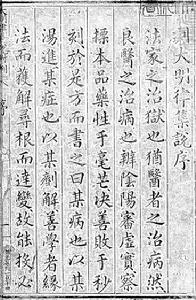 大明律集說序
法家之治獄也猶醫者之治病然
良醫之治病也辨陰陽審虛實察
標本品藥性于毫芒決善敗于秒
刻於是方而書之曰某病也以某
湯進某症也以某劑解善學者緣
法而獲解尋根而達變故能投必